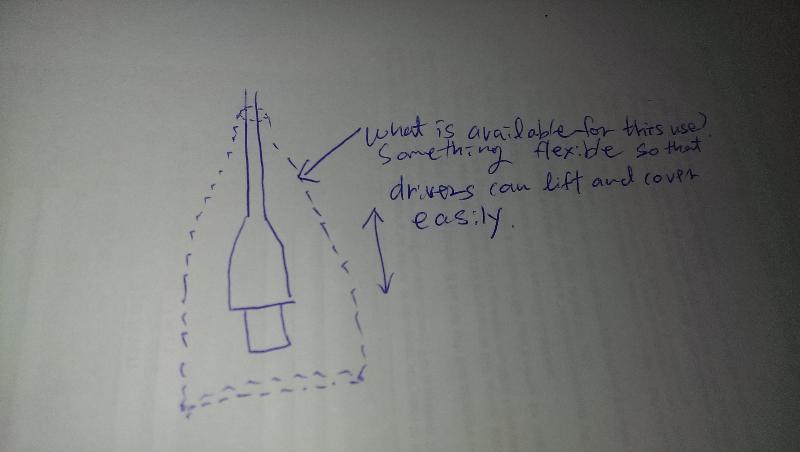 What is available for this use?
Something flexible so that
drivers can lift and cover
easily.